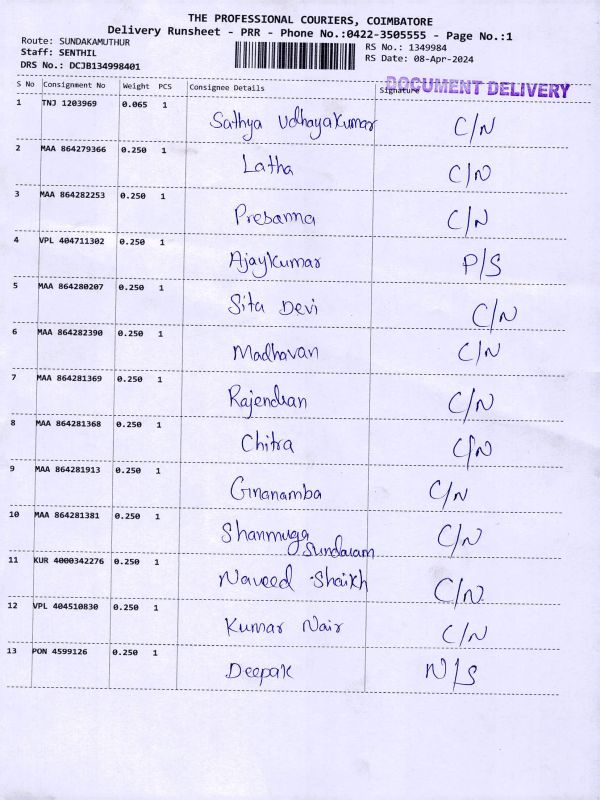 THE PROFESSIONAL COURIERS, COIMBATORE
Delivery Runsheet - PRR - Phone No.:0422-3505555 - Page No.:1
Route: SUNDAKAMUTHUR
RS No.: 1349984
Staff: SENTHIL
RS Date: 08-Apr-2024
DRS No.: DCJB134998401
DOCUMENT DELIVERY
S No Consignment No Weight PCS Consignee Details Signature
1 TNJ 1203969 0.065 1 Sathya Udhayakumar C/N
2 MAA 864279366 0.250 1 Latha C/N
3 MAA 864282253 0.250 1 Presanna C/N
4 VPL 404711302 0.250 1 Ajaykumar P/S
5 MAA 864280207 0.250 1 Sita Devi C/N
6 MAA 864282390 0.250 1 Madhavan C/N
7 MAA 864281369 0.250 1 Rajendran C/N
8 MAA 864281368 0.250 1 Chitra C/N
9 MAA 864281913 0.250 1 Gnanamba C/N
10 MAA 864281381 0.250 1 Shanmuga C/N
Sundaram
11 KUR 4000342276 0.250 1 Naveed Shaikh C/N
12 VPL 404510830 0.250 1 Kumar Nair C/N
13 PON 4599126 0.250 1 Deepak N/S